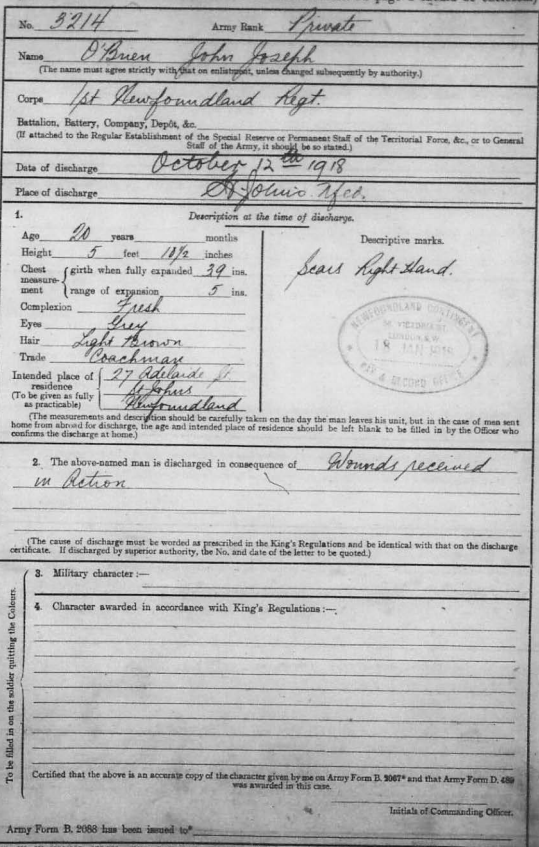 No. 3214 Army Rank Private
Name O'Brien John Joseph
(The name must agree strictly with that on enlistment, unless changed subsequently by authority.)
Corps 1st Newfoundland Regt.
Battalion, Battery, Company, Depôt, &c.
(If attached to the Regular Establishment of the Special Reserve or Permanent Staff of the Territorial Force, &c., or to General
Staff of the Army, it should be so stated.)
Date of discharge October 12th 1918
Place of discharge St John's Nfld.
1. Description at the time of discharge.
Age 20 years months
Height 5 feet 10½ inches
Chest measurement { girth when fully expanded 39 ins.
range of expansion 5 ins.
Complexion Fresh
Eyes Grey
Hair Light Brown
Trade Coachman
Intended place of residence (To be given as fully as practicable) { 27 Adelaide St
St Johns
Newfoundland
Descriptive marks.
Scars Right Hand.
NEWFOUNDLAND CONTINGENT
PAY & RECORD OFFICE
(The measurements and description should be carefully taken on the day the man leaves his unit, but in the case of men sent
home from abroad for discharge, the age and intended place of residence should be left blank to be filled in by the Officer who
confirms the discharge at home.)
2. The above-named man is discharged in consequence of Wounds received
in Action
(The cause of discharge must be worded as prescribed in the King's Regulations and be identical with that on the discharge
certificate. If discharged by superior authority, the No. and date of the letter to be quoted.)
To be filled in on the soldier quitting the Colours.
3. Military character :—
4. Character awarded in accordance with King's Regulations :—
Certified that the above is an accurate copy of the character given by me on Army Form B. 2067* and that Army Form D. 489
was awarded in this case.
Initials of Commanding Officer.
Army Form B. 2088 has been issued to*